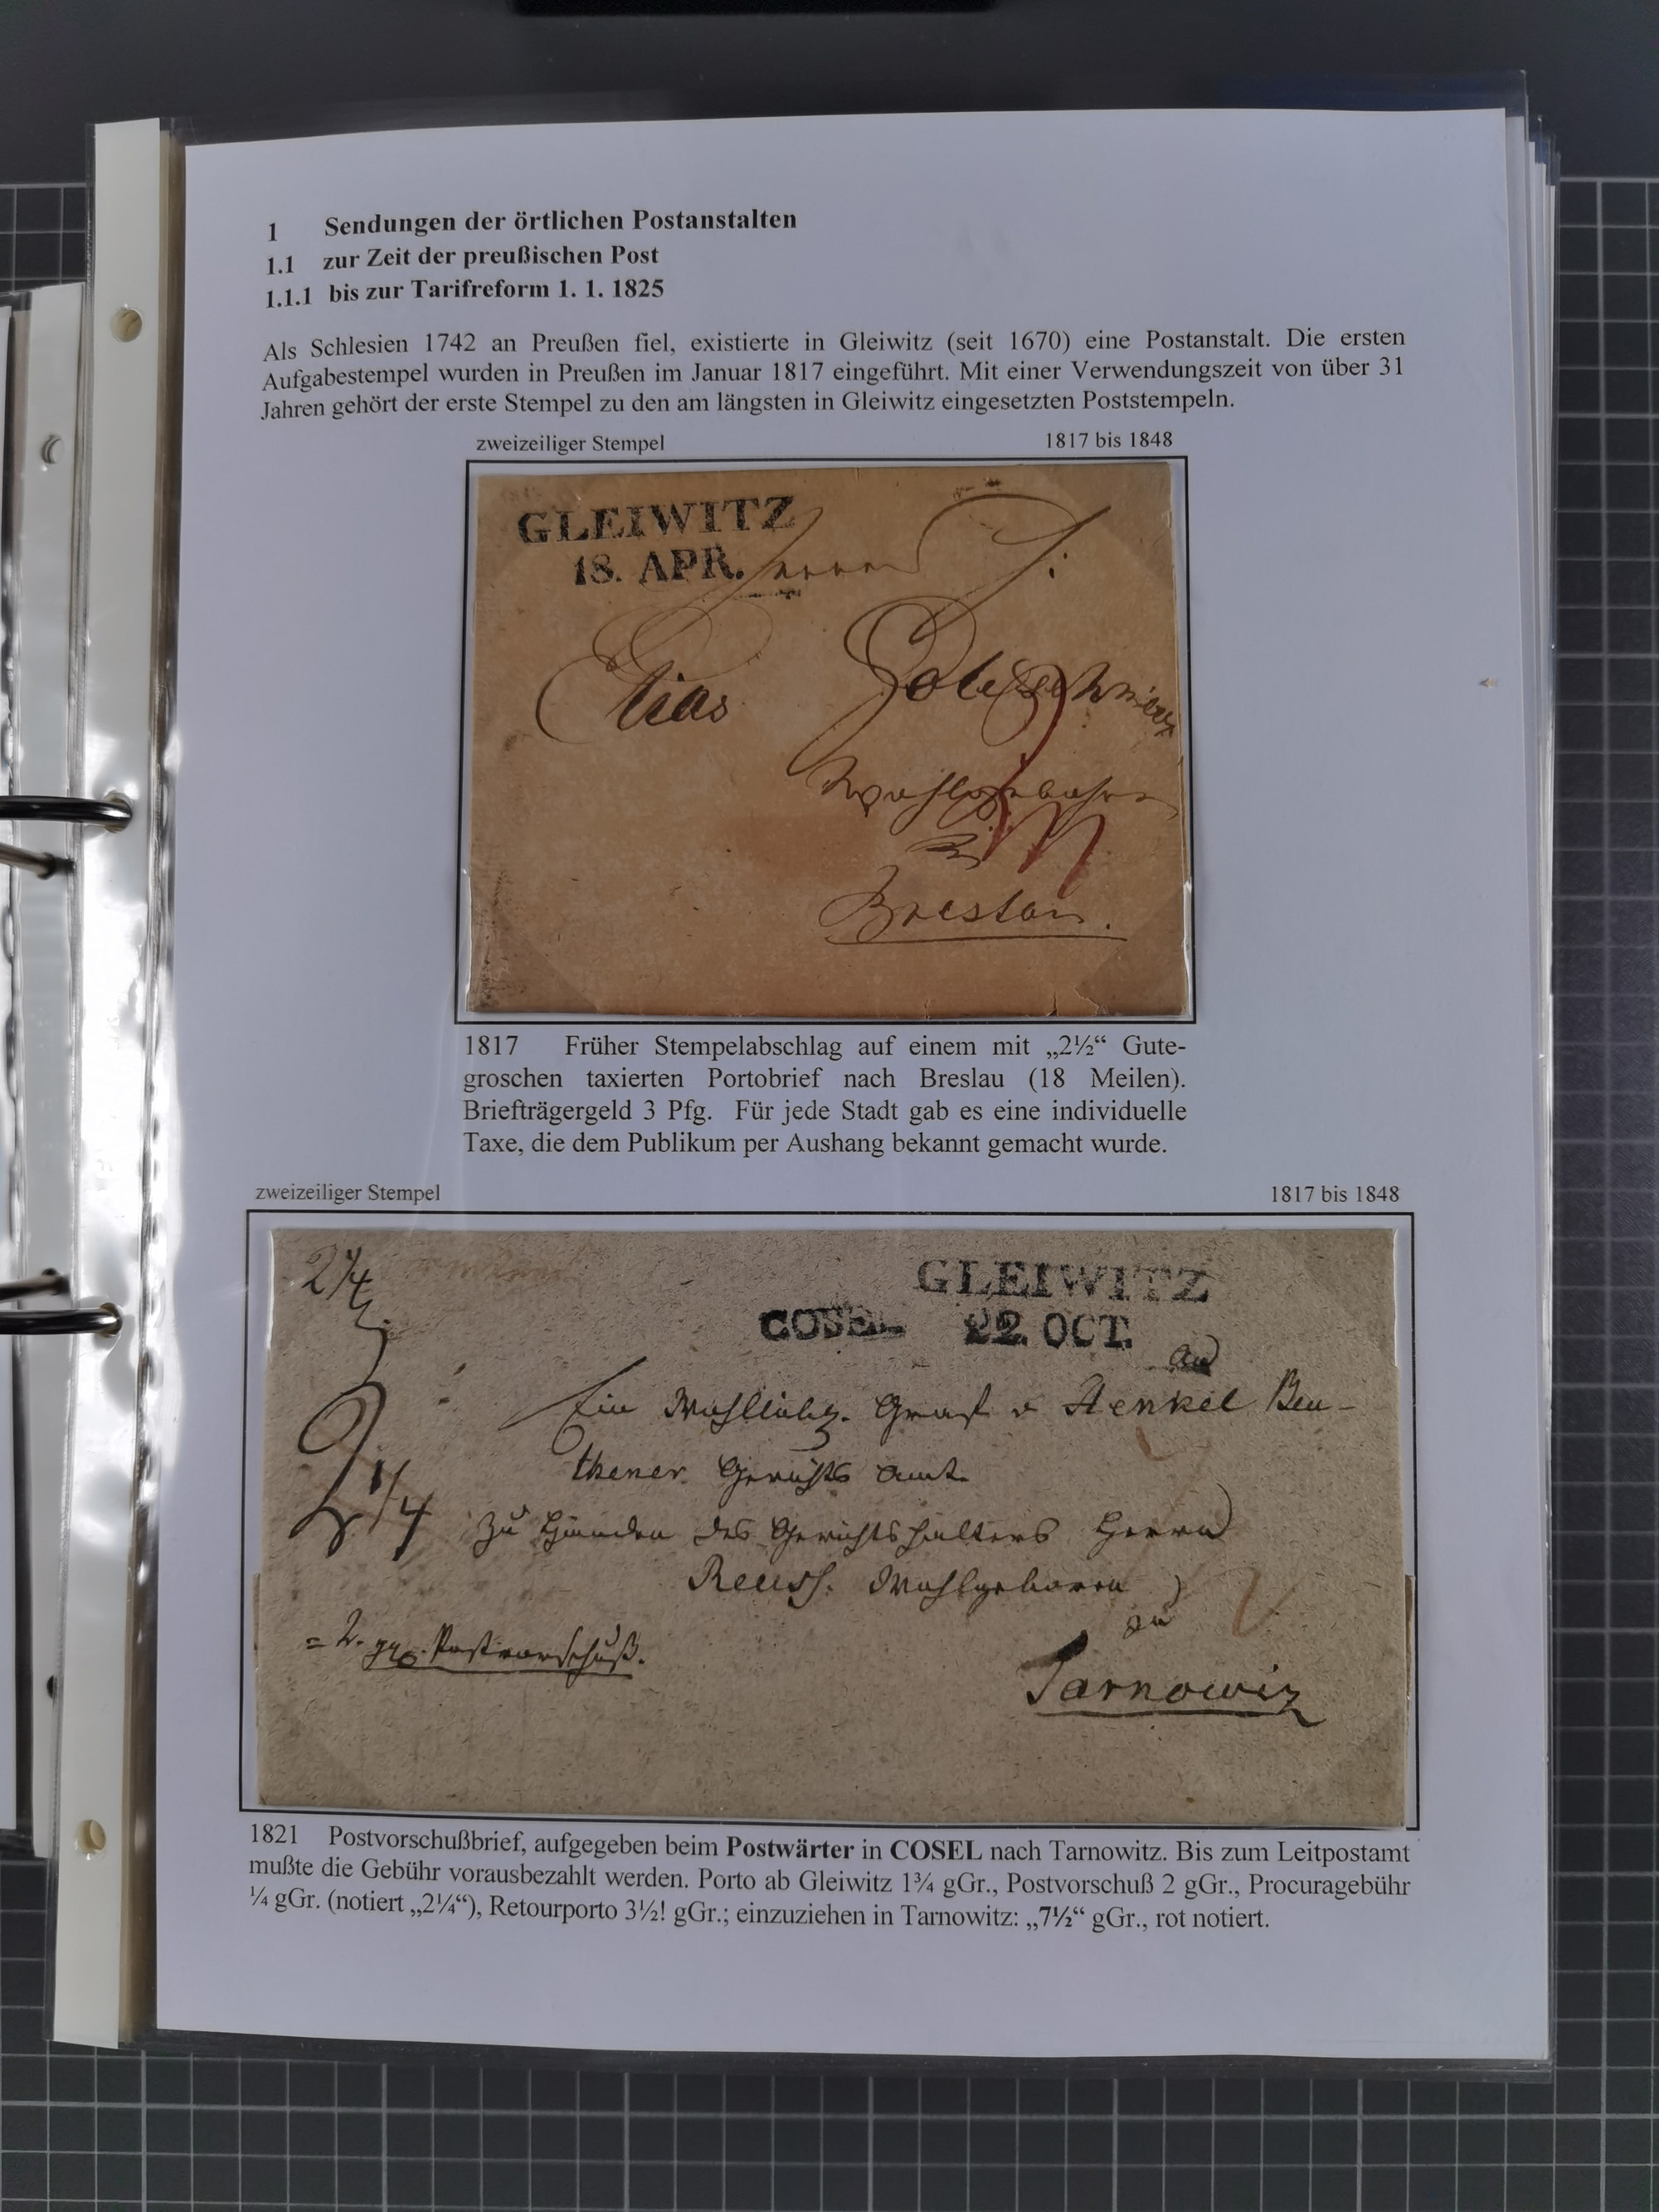 1 Sendungen der örtlichen Postanstalten
1.1 zur Zeit der preußischen Post
1.1.1 bis zur Tarifreform 1. 1. 1825
Als Schlesien 1742 an Preußen fiel, existierte in Gleiwitz (seit 1670) eine Postanstalt. Die ersten
Aufgabestempel wurden in Preußen im Januar 1817 eingeführt. Mit einer Verwendungszeit von über 31
Jahren gehört der erste Stempel zu den am längsten in Gleiwitz eingesetzten Poststempeln.
zweizeiliger Stempel 1817 bis 1848
GLEIWITZ
18. APR.
Elias
Breslau.
1817 Früher Stempelabschlag auf einem mit „2½“ Gute-
groschen taxierten Portobrief nach Breslau (18 Meilen).
Briefträgergeld 3 Pfg. Für jede Stadt gab es eine individuelle
Taxe, die dem Publikum per Aushang bekannt gemacht wurde.
zweizeiliger Stempel 1817 bis 1848
2¼
GLEIWITZ
COSEL 22. OCT.
An
Ein Wohllöbl. Graf v Henkel Beu-
thener Gerichts Amt
2¼ zu Händen des Gerichtshalters Herrn
Reuss. Wohlgeboren
zu
= 2. ggr. Postvorschuß.
Tarnowiz
1821 Postvorschußbrief, aufgegeben beim Postwärter in COSEL nach Tarnowitz. Bis zum Leitpostamt
mußte die Gebühr vorausbezahlt werden. Porto ab Gleiwitz 1¾ gGr., Postvorschuß 2 gGr., Procuragebühr
¼ gGr. (notiert „2¼“), Retourporto 3½! gGr.; einzuziehen in Tarnowitz: „7½“ gGr., rot notiert.